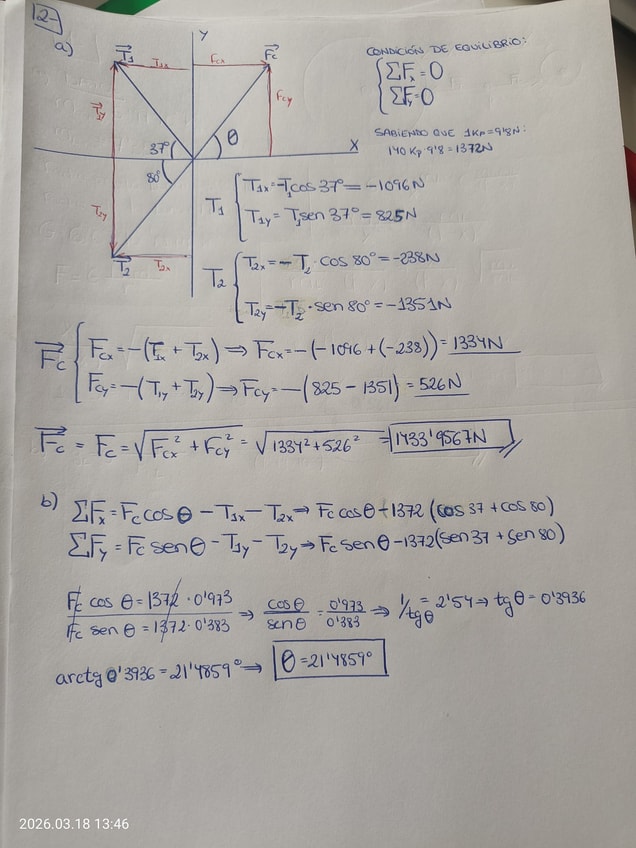 12-
a)
Y
T₁
T1x
Fcx
Fc
CONDICIÓN DE EQUILIBRIO:
ΣFx=0
ΣFy=0
T1y
Fcy
SABIENDO QUE 1Kp=9'8N:
140 Kp·9'8=1372N
37°
θ
X
80°
T₁ { T1x=-T₁cos 37°=-1096N
T1y=T₁sen 37°=825N
T2y
T₂
T2x
T₂ { T2x=-T₂·cos 80°=-238N
T2y=-T₂·sen 80°=-1351N
Fc { Fcx=-(T1x+T2x)⇒Fcx=-(-1096+(-238))=1334N
Fcy=-(T1y+T2y)→Fcy=-(825-1351)=526N
Fc = Fc=√Fcx²+Fcy²=√1334²+526²=1433'9567N
b) ΣFx=Fc cosθ-T1x-T2x⇒Fc cosθ-1372(cos 37+cos 80)
ΣFy=Fc senθ-T1y-T2y⇒Fc senθ-1372(sen 37+sen 80)
Fc cos θ=1372·0'973
Fc sen θ=1372·0'383 ⇒ cosθ/senθ=0'973/0'383 ⇒ 1/tgθ=2'54⇒tgθ=0'3936
arctg 0'3936=21'4859°⇒ θ=21'4859°
2026.03.18 13:46